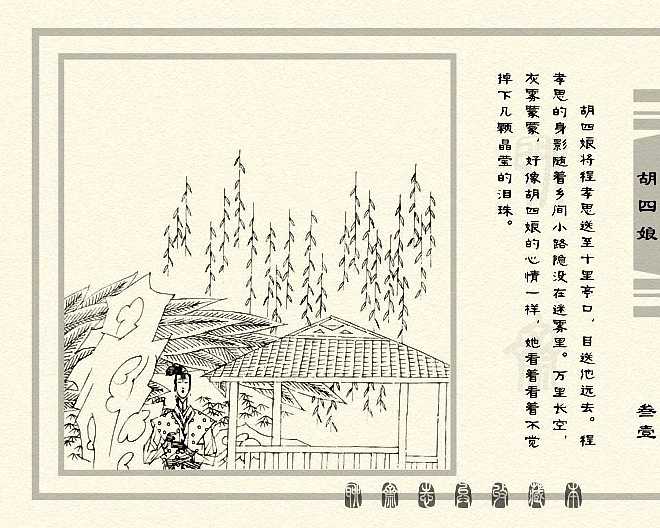 胡四娘
叁壹
胡四娘将程孝思送至十里亭口，目送他远去。程
孝思的身影随着乡间小路隐没在迷雾里。万里长空，
灰雾蒙蒙，好像胡四娘的心情一样，她看着看着不觉
掉下几颗晶莹的泪珠。